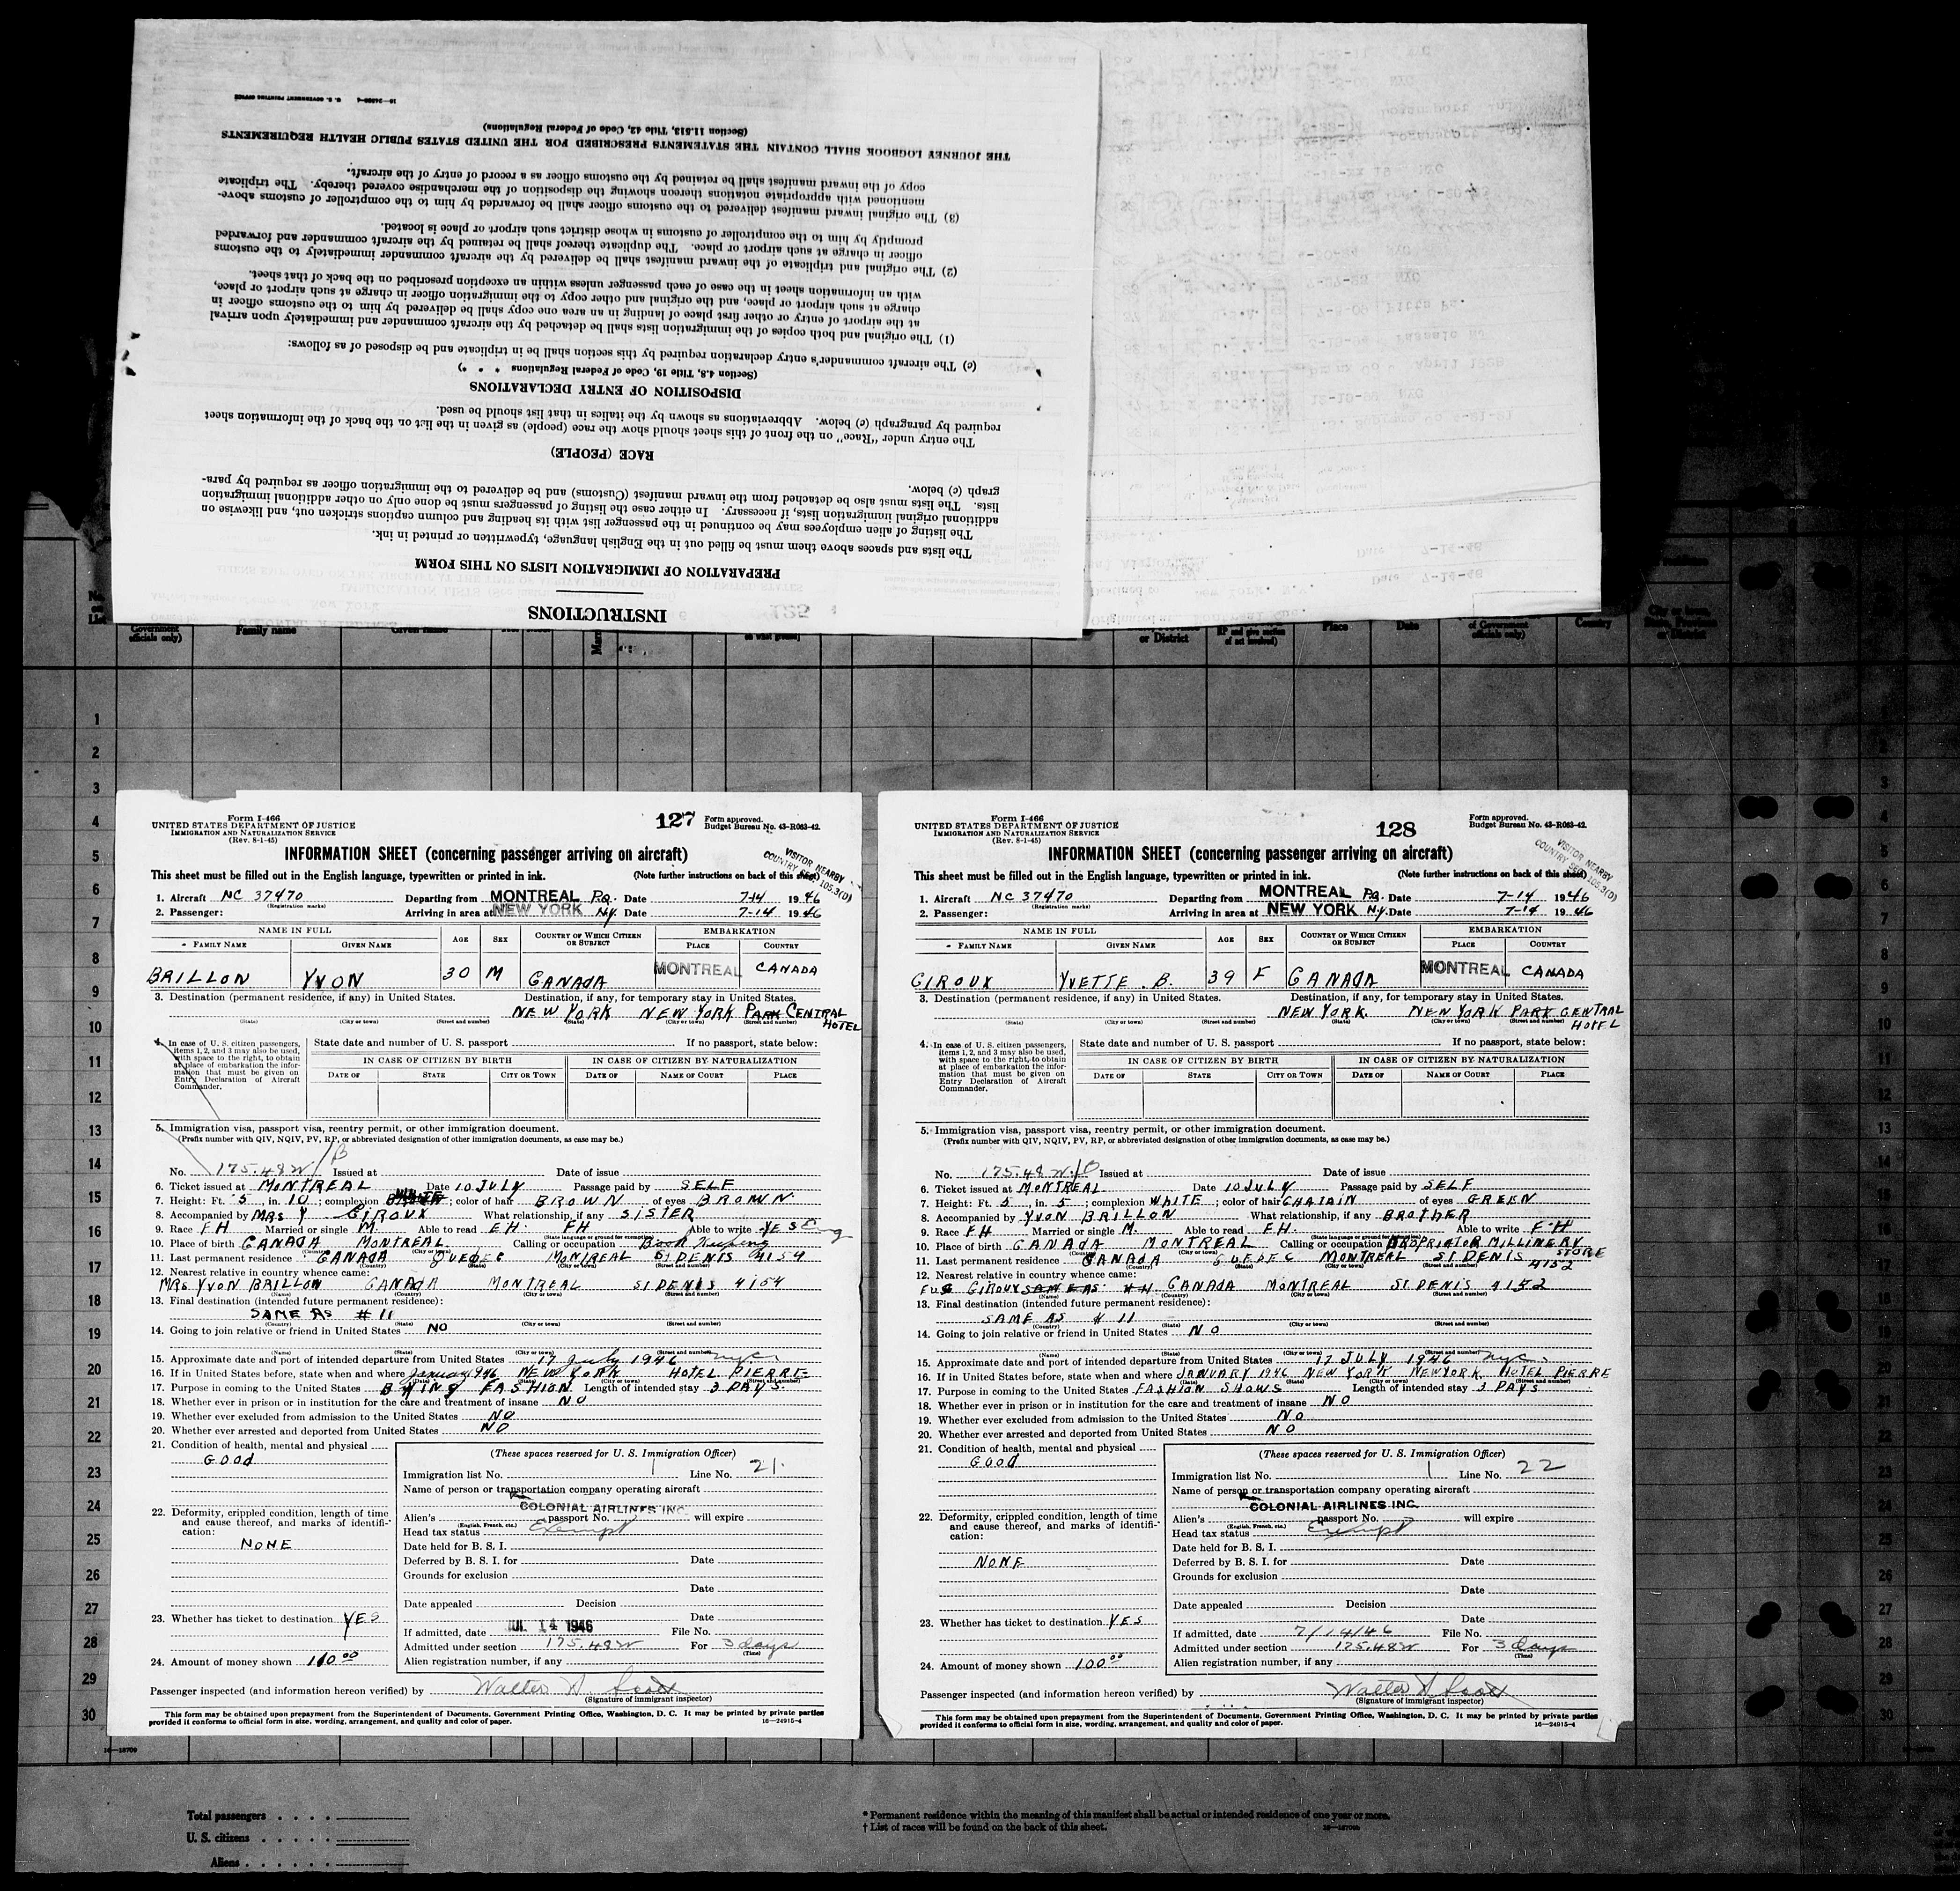 INSTRUCTIONS
PREPARATION OF IMMIGRATION LISTS ON THIS FORM
The lists and spaces above them must be filled out in the English language, typewritten or printed in ink.
The listing of alien employees may be continued in the passenger list with its heading and column captions stricken out, and likewise on
additional original immigration lists, if necessary. In either case the listing of passengers must be done only on other additional immigration
lists. The lists must also be detached from the inward manifest (Customs) and be delivered to the immigration officer as required by para-
graph (c) below.
RACE (PEOPLE)
The entry under "Race" on the front of this sheet should show the race (people) as given in the list on the back of the information sheet
required by paragraph (c) below. Abbreviations as shown by the italics in that list should be used.
DISPOSITION OF ENTRY DECLARATIONS
(Section 4.8, Title 19, Code of Federal Regulations * * *)
(c) The aircraft commander's entry declaration required by this section shall be in triplicate and be disposed of as follows:
(1) The original and both copies of the immigration lists shall be detached by the aircraft commander and immediately upon arrival
at the airport of entry or other first place of landing in an area one copy shall be delivered by him to the customs officer in
charge at such airport or place, and the original and other copy to the immigration officer in charge at such airport or place,
with an information sheet in the case of each passenger unless within an exception prescribed on the back of that sheet.
(2) The original and triplicate of the inward manifest shall be delivered by the aircraft commander immediately to the customs
officer in charge at such airport or place. The duplicate thereof shall be retained by the aircraft commander and forwarded
promptly by him to the comptroller of customs in whose district such airport or place is located.
(3) The original inward manifest delivered to the customs officer shall be forwarded by him to the comptroller of customs above-
mentioned with appropriate notations thereon showing the disposition of the merchandise covered thereby. The triplicate
copy of the inward manifest shall be retained by the customs officer as a record of entry of the aircraft.
THE JOURNEY LOGBOOK SHALL CONTAIN THE STATEMENTS PRESCRIBED FOR THE UNITED STATES PUBLIC HEALTH REQUIREMENTS
(Section 11.513, Title 42, Code of Federal Regulations)
U. S. GOVERNMENT PRINTING OFFICE
Family name Given name
or District Place Date Country
Form I-466
UNITED STATES DEPARTMENT OF JUSTICE
IMMIGRATION AND NATURALIZATION SERVICE
(Rev. 8-1-45)
127
Form approved.
Budget Bureau No. 43-R063-42.
INFORMATION SHEET (concerning passenger arriving on aircraft)
VISITOR NEARBY
COUNTRY SEC. 105.3(D)
This sheet must be filled out in the English language, typewritten or printed in ink. (Note further instructions on back of this sheet)
1. Aircraft NC 37470 Departing from MONTREAL P.Q. Date 7-14 1946
(Registration marks)
2. Passenger: Arriving in area at NEW YORK N.Y. Date 7-14 1946
NAME IN FULL AGE SEX COUNTRY OF WHICH CITIZEN OR SUBJECT EMBARKATION
FAMILY NAME GIVEN NAME PLACE COUNTRY
BRILLON YVON 30 M CANADA MONTREAL CANADA
3. Destination (permanent residence, if any) in United States. Destination, if any, for temporary stay in United States.
NEW YORK NEW YORK PARK CENTRAL HOTEL
(State) (City or town) (Street and number) (State) (City or town) (Street and number)
4. In case of U. S. citizen passengers, items 1, 2, and 3 may also be used, with space to the right, to obtain at place of embarkation the information that must be given on Entry Declaration of Aircraft Commander.
State date and number of U. S. passport If no passport, state below:
IN CASE OF CITIZEN BY BIRTH IN CASE OF CITIZEN BY NATURALIZATION
DATE OF STATE CITY OR TOWN DATE OF NAME OF COURT PLACE
5. Immigration visa, passport visa, reentry permit, or other immigration document.
(Prefix number with QIV, NQIV, PV, RP, or abbreviated designation of other immigration documents, as case may be.)
No. 175.48w/B Issued at Date of issue
6. Ticket issued at MONTREAL Date 10 JULY Passage paid by SELF
7. Height: Ft. 5, in. 10; complexion WHITE; color of hair BROWN of eyes BROWN
8. Accompanied by MRS Y GIROUX What relationship, if any SISTER
9. Race FH Married or single M. Able to read EH. FH Able to write YES Eng
(State language or ground for exemption)
10. Place of birth CANADA MONTREAL Calling or occupation Book Keeping
(Country) (City or town)
11. Last permanent residence CANADA QUEBEC MONTREAL St DENIS 4154
(Country) (State) (City or town) (Street and number)
12. Nearest relative in country whence came:
MRS YVON BRILLON CANADA MONTREAL St DENIS 4154
(Name) (Country) (City or town) (Street and number)
13. Final destination (intended future permanent residence):
SAME AS # 11
(Country) (State) (City or town) (Street and number)
14. Going to join relative or friend in United States NO
(Name) (State) (City or town) (Street and number)
15. Approximate date and port of intended departure from United States 17 July 1946 nyc
16. If in United States before, state when and where January 1946 NEW YORK HOTEL PIERRE
(Date) (Street and number)
17. Purpose in coming to the United States BYING FASHION Length of intended stay 3 DAYS
18. Whether ever in prison or in institution for the care and treatment of insane NO
19. Whether ever excluded from admission to the United States NO
20. Whether ever arrested and deported from United States NO
21. Condition of health, mental and physical
GOOd
22. Deformity, crippled condition, length of time and cause thereof, and marks of identification:
NONE
23. Whether has ticket to destination YES
24. Amount of money shown 110.00
(These spaces reserved for U. S. Immigration Officer)
Immigration list No. 1 Line No. 21
Name of person or transportation company operating aircraft
COLONIAL AIRLINES INC.
Alien's passport No. will expire
(English, French, etc.)
Head tax status Exempt
Date held for B. S. I.
Deferred by B. S. I. for Date
Grounds for exclusion
Date
Date appealed Decision
Date
If admitted, date JUL 14 1946 File No.
Admitted under section 175.48w For 3 days
(Time)
Alien registration number, if any
Passenger inspected (and information hereon verified) by Walter Scott
(Signature of immigrant inspector)
This form may be obtained upon prepayment from the Superintendent of Documents, Government Printing Office, Washington, D. C. It may be printed by private parties
provided it conforms to official form in size, wording, arrangement, and quality and color of paper. 16—24915-4
Form I-466
UNITED STATES DEPARTMENT OF JUSTICE
IMMIGRATION AND NATURALIZATION SERVICE
(Rev. 8-1-45)
128
Form approved.
Budget Bureau No. 43-R063-42.
INFORMATION SHEET (concerning passenger arriving on aircraft)
VISITOR NEARBY
COUNTRY SEC. 105.3(D)
This sheet must be filled out in the English language, typewritten or printed in ink. (Note further instructions on back of this sheet)
1. Aircraft NC 37470 Departing from MONTREAL P.Q. Date 7-14 1946
(Registration marks)
2. Passenger: Arriving in area at NEW YORK N.Y. Date 7-14 1946
NAME IN FULL AGE SEX COUNTRY OF WHICH CITIZEN OR SUBJECT EMBARKATION
FAMILY NAME GIVEN NAME PLACE COUNTRY
GIROUX YVETTE . B. 39 F CANADA MONTREAL CANADA
3. Destination (permanent residence, if any) in United States. Destination, if any, for temporary stay in United States.
NEW YORK. NEW YORK PARK CENTRAL HOTEL
(State) (City or town) (Street and number) (State) (City or town) (Street and number)
4. In case of U. S. citizen passengers, items 1, 2, and 3 may also be used, with space to the right, to obtain at place of embarkation the information that must be given on Entry Declaration of Aircraft Commander.
State date and number of U. S. passport If no passport, state below:
IN CASE OF CITIZEN BY BIRTH IN CASE OF CITIZEN BY NATURALIZATION
DATE OF STATE CITY OR TOWN DATE OF NAME OF COURT PLACE
5. Immigration visa, passport visa, reentry permit, or other immigration document.
(Prefix number with QIV, NQIV, PV, RP, or abbreviated designation of other immigration documents, as case may be.)
No. 175.48w/B Issued at Date of issue
6. Ticket issued at MONTREAL Date 10 JULY Passage paid by SELF
7. Height: Ft. 5, in. 5; complexion WHITE; color of hair CHATAIN of eyes GREEN
8. Accompanied by YVON BRILLON What relationship, if any BROTHER
9. Race FH Married or single M. Able to read EH. Able to write F-H
(State language or ground for exemption)
10. Place of birth CANADA MONTREAL Calling or occupation PROPRIATOR MILLINERY STORE
(Country) (City or town)
11. Last permanent residence CANADA QUEBEC MONTREAL St DENIS 4152
(Country) (State) (City or town) (Street and number)
12. Nearest relative in country whence came:
EUG GIROUX SAME AS #11 CANADA MONTREAL St DENIS 4152
(Name) (Country) (City or town) (Street and number)
13. Final destination (intended future permanent residence):
SAME AS # 11
(Country) (State) (City or town) (Street and number)
14. Going to join relative or friend in United States NO
(Name) (State) (City or town) (Street and number)
15. Approximate date and port of intended departure from United States 17 JULY 1946 nyc
16. If in United States before, state when and where JANUARY 1946 NEW YORK NEWYORK HOTEL PIERRE
(Date) (State) (City or town) (Street and number)
17. Purpose in coming to the United States FASHION SHOWS Length of intended stay 3 DAYS
18. Whether ever in prison or in institution for the care and treatment of insane NO
19. Whether ever excluded from admission to the United States NO
20. Whether ever arrested and deported from United States NO
21. Condition of health, mental and physical
GOOd
22. Deformity, crippled condition, length of time and cause thereof, and marks of identification:
NONE
23. Whether has ticket to destination YES
24. Amount of money shown 100.00
(These spaces reserved for U. S. Immigration Officer)
Immigration list No. 1 Line No. 22
Name of person or transportation company operating aircraft
COLONIAL AIRLINES INC.
Alien's passport No. will expire
(English, French, etc.)
Head tax status Exempt
Date held for B. S. I.
Deferred by B. S. I. for Date
Grounds for exclusion
Date
Date appealed Decision
Date
If admitted, date 7/14/46 File No.
Admitted under section 175.48w For 3 days
(Time)
Alien registration number, if any
Passenger inspected (and information hereon verified) by Walter Scott
(Signature of immigrant inspector)
This form may be obtained upon prepayment from the Superintendent of Documents, Government Printing Office, Washington, D. C. It may be printed by private parties
provided it conforms to official form in size, wording, arrangement, and quality and color of paper. 16—24915-4
1
2
3
4
5
6
7
8
9
10
11
12
13
14
15
16
17
18
19
20
21
22
23
24
25
26
27
28
29
30
Total passengers
U. S. citizens
Aliens
* Permanent residence within the meaning of this manifest shall be actual or intended residence of one year or more.
† List of races will be found on the back of this sheet.